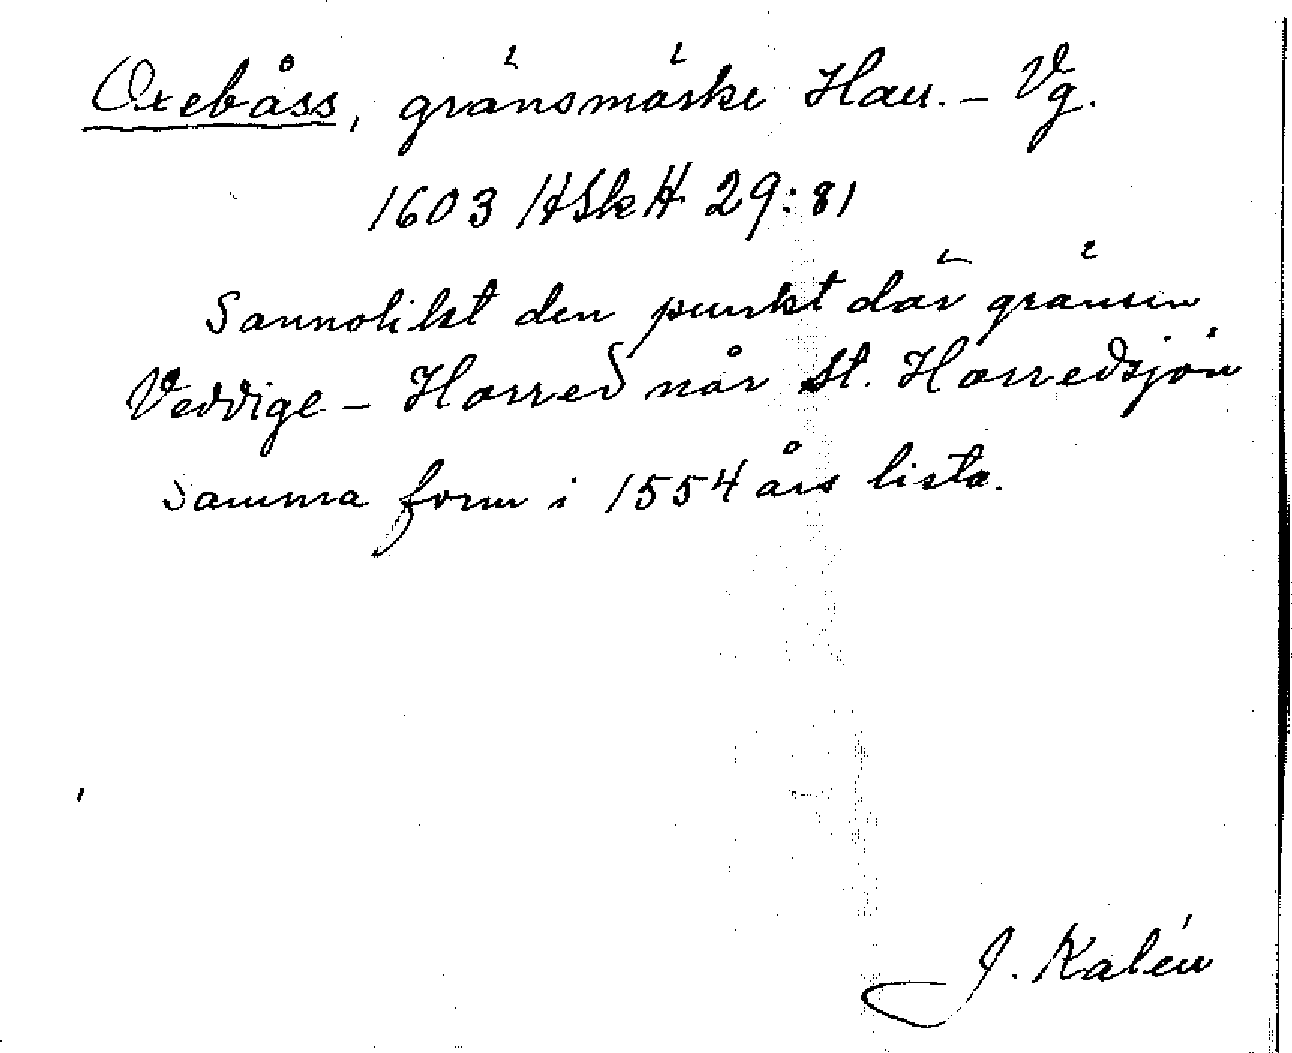 Oxebåss, gränsmärke Hall. - Vg.
1603 HSkH 29:81
Sannolikt den punkt där gränsen
Veddige - Horred når St. Horredsjön
Samma form i 1554 års lista.
J. Kalén